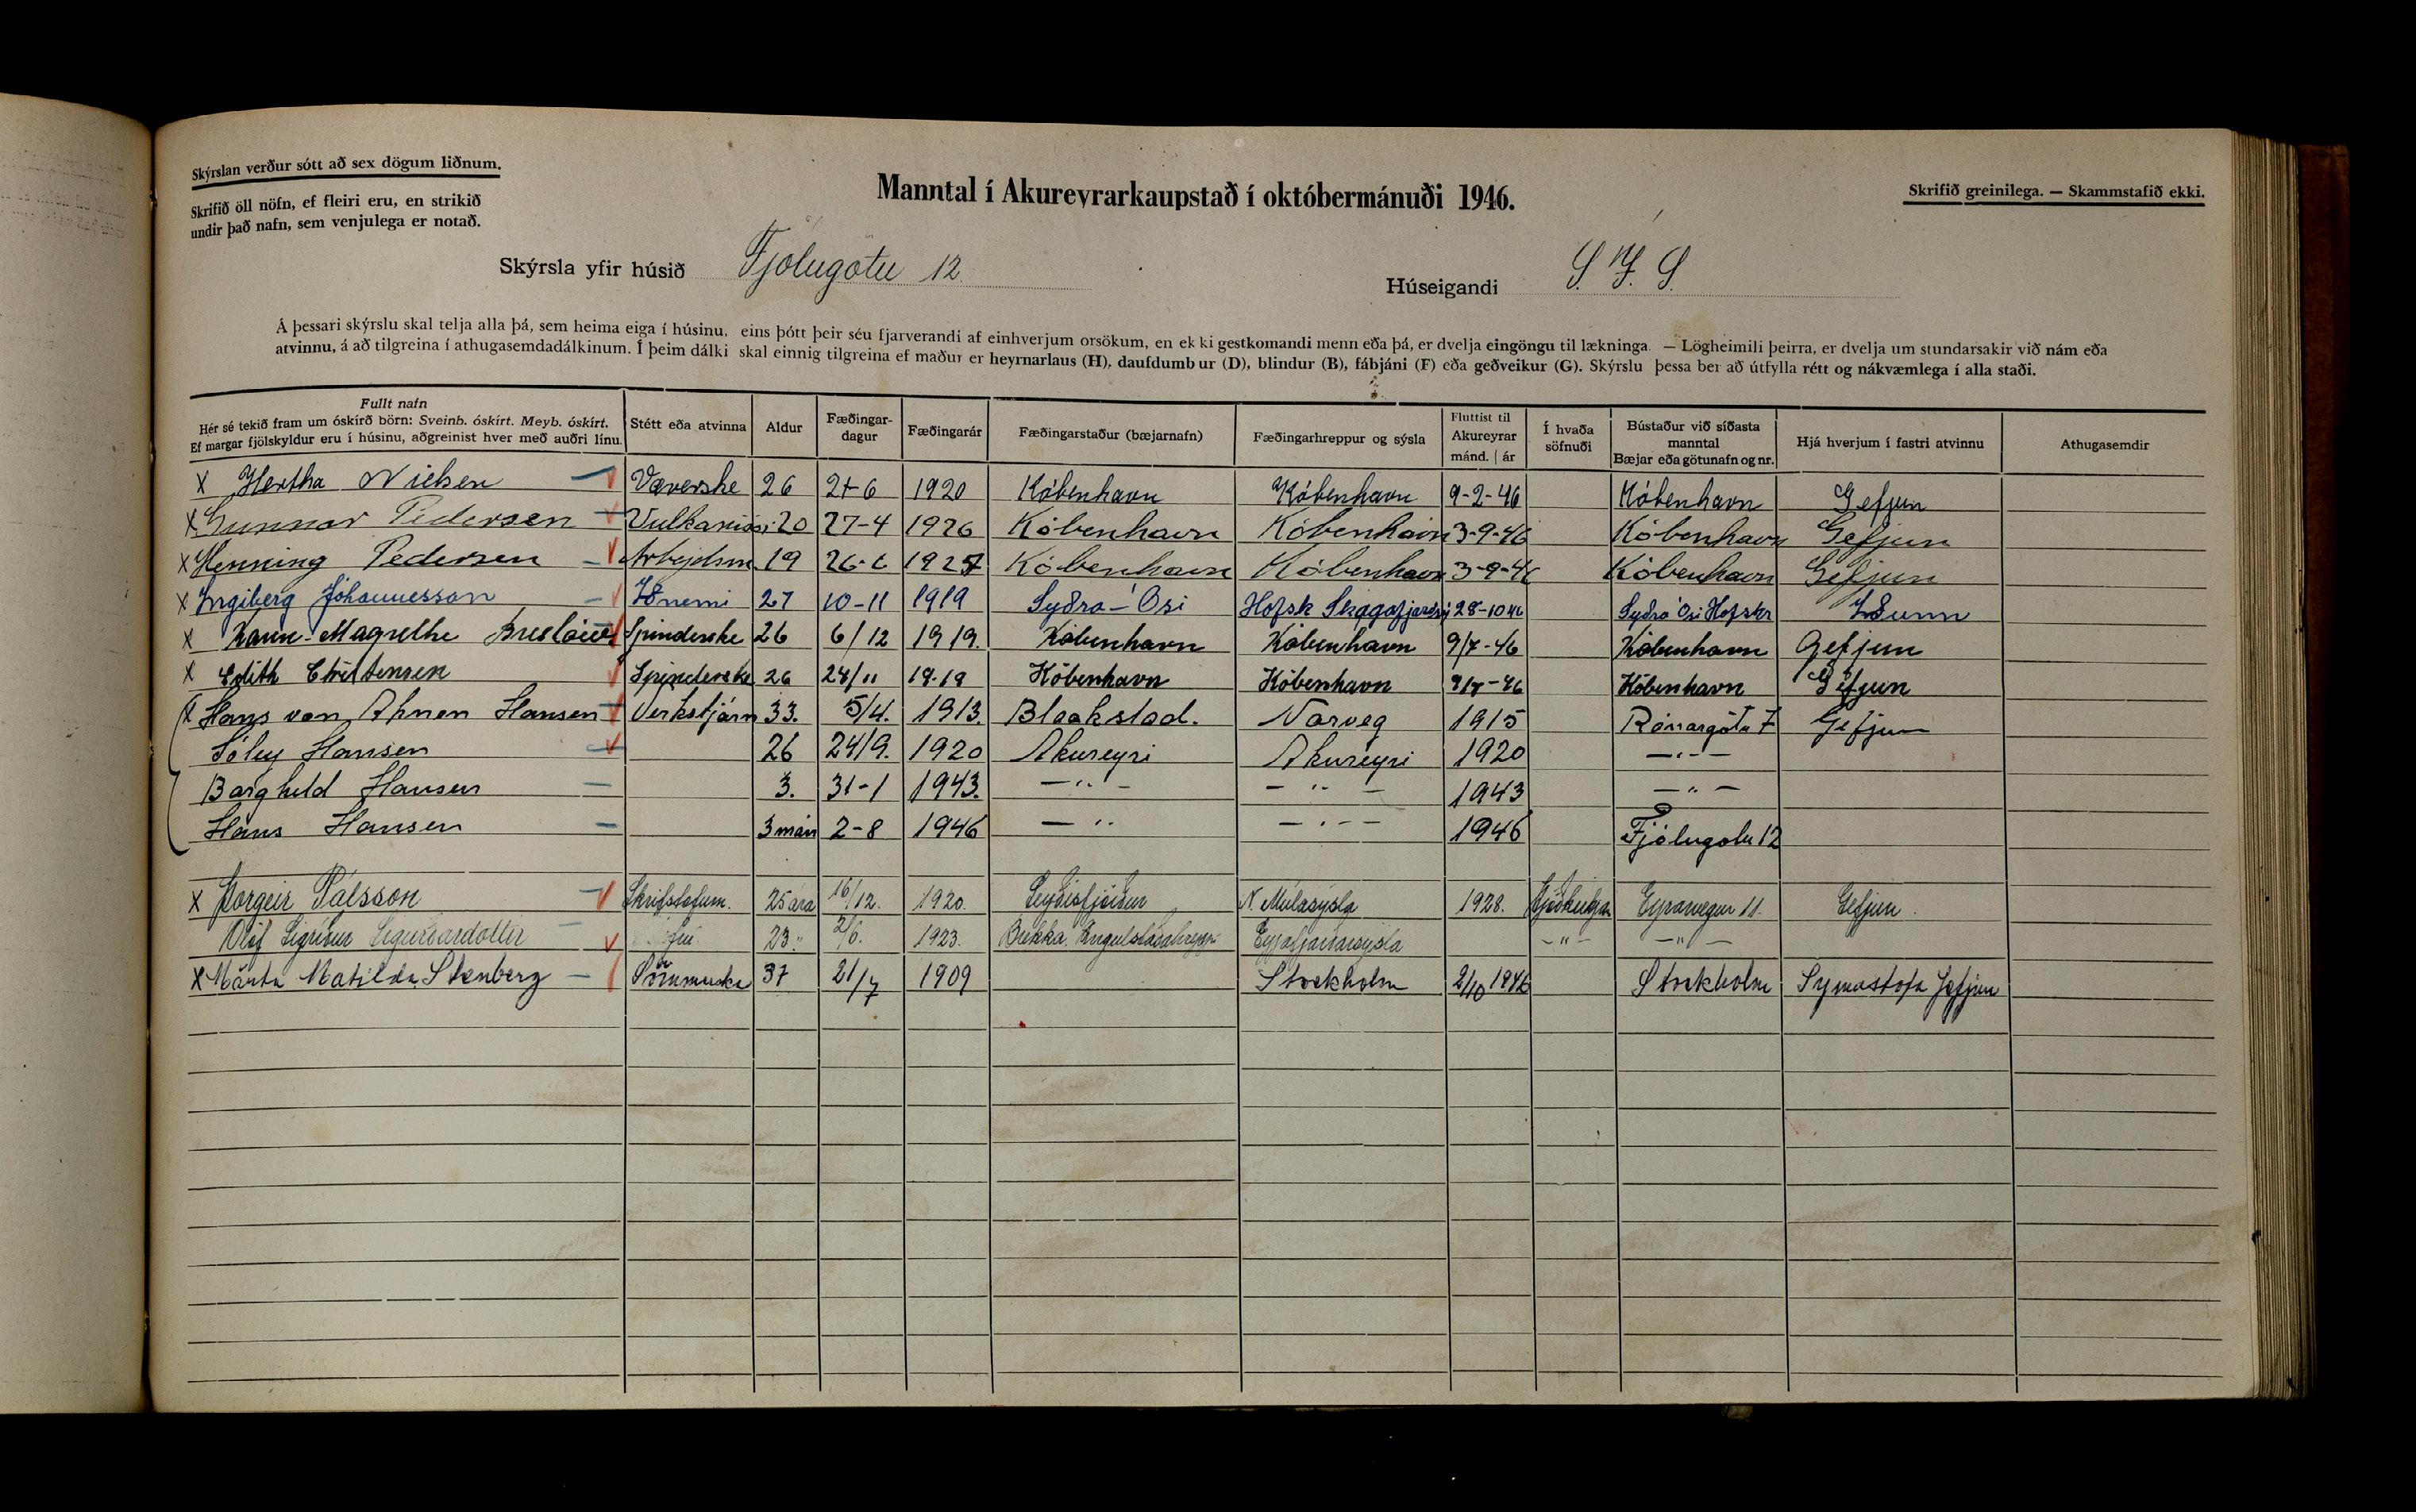 Skýrslan verður sótt að sex dögum liðnum.
Skrifið öll nöfn, ef fleiri eru, en strikið
undir það nafn, sem venjulega er notað.
Manntal í Akureyrarkaupstað í októbermánuði 1946.
Skrifið greinilega. — Skammstafið ekki.
Skýrsla yfir húsið Fjólugötu 12
Húseigandi S. Í. S.
Á þessari skýrslu skal telja alla þá, sem heima eiga í húsinu, eins þótt þeir séu fjarverandi af einhverjum orsökum, en ekki gestkomandi menn eða þá, er dvelja eingöngu til lækninga. — Lögheimili þeirra, er dvelja um stundarsakir við nám eða
atvinnu, á að tilgreina í athugasemdadálkinum. Í þeim dálki skal einnig tilgreina ef maður er heyrnarlaus (H), daufdumbur (D), blindur (B), fábjáni (F) eða geðveikur (G). Skýrslu þessa ber að útfylla rétt og nákvæmlega í alla staði.
Fullt nafn
Hér sé tekið fram um óskírð börn: Sveinb. óskírt. Meyb. óskírt.
Ef margar fjölskyldur eru í húsinu, aðgreinist hver með auðri línu.
Stétt eða atvinna
Aldur
Fæðingar-
dagur
Fæðingarár
Fæðingarstaður (bæjarnafn)
Fæðingarhreppur og sýsla
Fluttist til
Akureyrar
mánd. | ár
Í hvaða
söfnuði
Bústaður við síðasta
manntal
Bæjar eða götunafn og nr.
Hjá hverjum í fastri atvinnu
Athugasemdir
X Hertha Nielsen Væverske 26 24-6 1920 Kóbenhavn Kóbenhavn 9-2-46 Kóbenhavn Gefjun
X Gunnar Pedersen 20 27-4 1926 Kóbenhavn Kóbenhavn 3-9-46 Kóbenhavn Gefjun
X Henning Pedersen Arbejdsm. 19 26-6 1927 Kóbenhavn Kóbenhavn 3-9-46 Kóbenhavn Gefjun
X Ingiberg Jóhannesson Iðnemi 27 10-11 1919 Syðra-Ósi Hofsk Skagafjarðars 28-10 46 Syðra Ósi Hofskr Iðunn
X Karin-Magrethe Spinderske 26 6/12 1919. Kóbenhavn Kóbenhavn 9/7-46 Kóbenhavn Gefjun
X Edith Christensen Spinderske 26 28/11 19.19 Kóbenhavn Kóbenhavn 9/7-46 Kóbenhavn Gefjun
X Hans von Ahnen Hansen Verkstjórn 33. 5/4. 1913. Blaakstad. Noregeg 1915 Ránargötu 7 Gefjun
Sóley Hansen 26 24/9. 1920 Akureyri Akureyri 1920 —"—
Borghild Hansen 3. 31-1 1943. —"— —"— 1943 —"—
Hans Hansen 3 mán 2-8 1946 —" —"— 1946 Fjólugötu 12
X Þorgeir Pálsson Skrifstofum. 25 ára 16/12. 1920. Seyðisfjörður N. Múlasýsla 1928. Þjóðkirkjan Eyrarvegur 11. Gefjun.
Ólöf Sigríður Sigurðardóttir frú 23 " 2/6. 1923. Brekka, Öngulstaðahrepp Eyjafjarðarsýsla —"— —"—
X Märta Matilda Stenberg Sömmerska 37 21/7 1909 Stockholm 2/10 1946 Stockholm Symastofa Gefjun